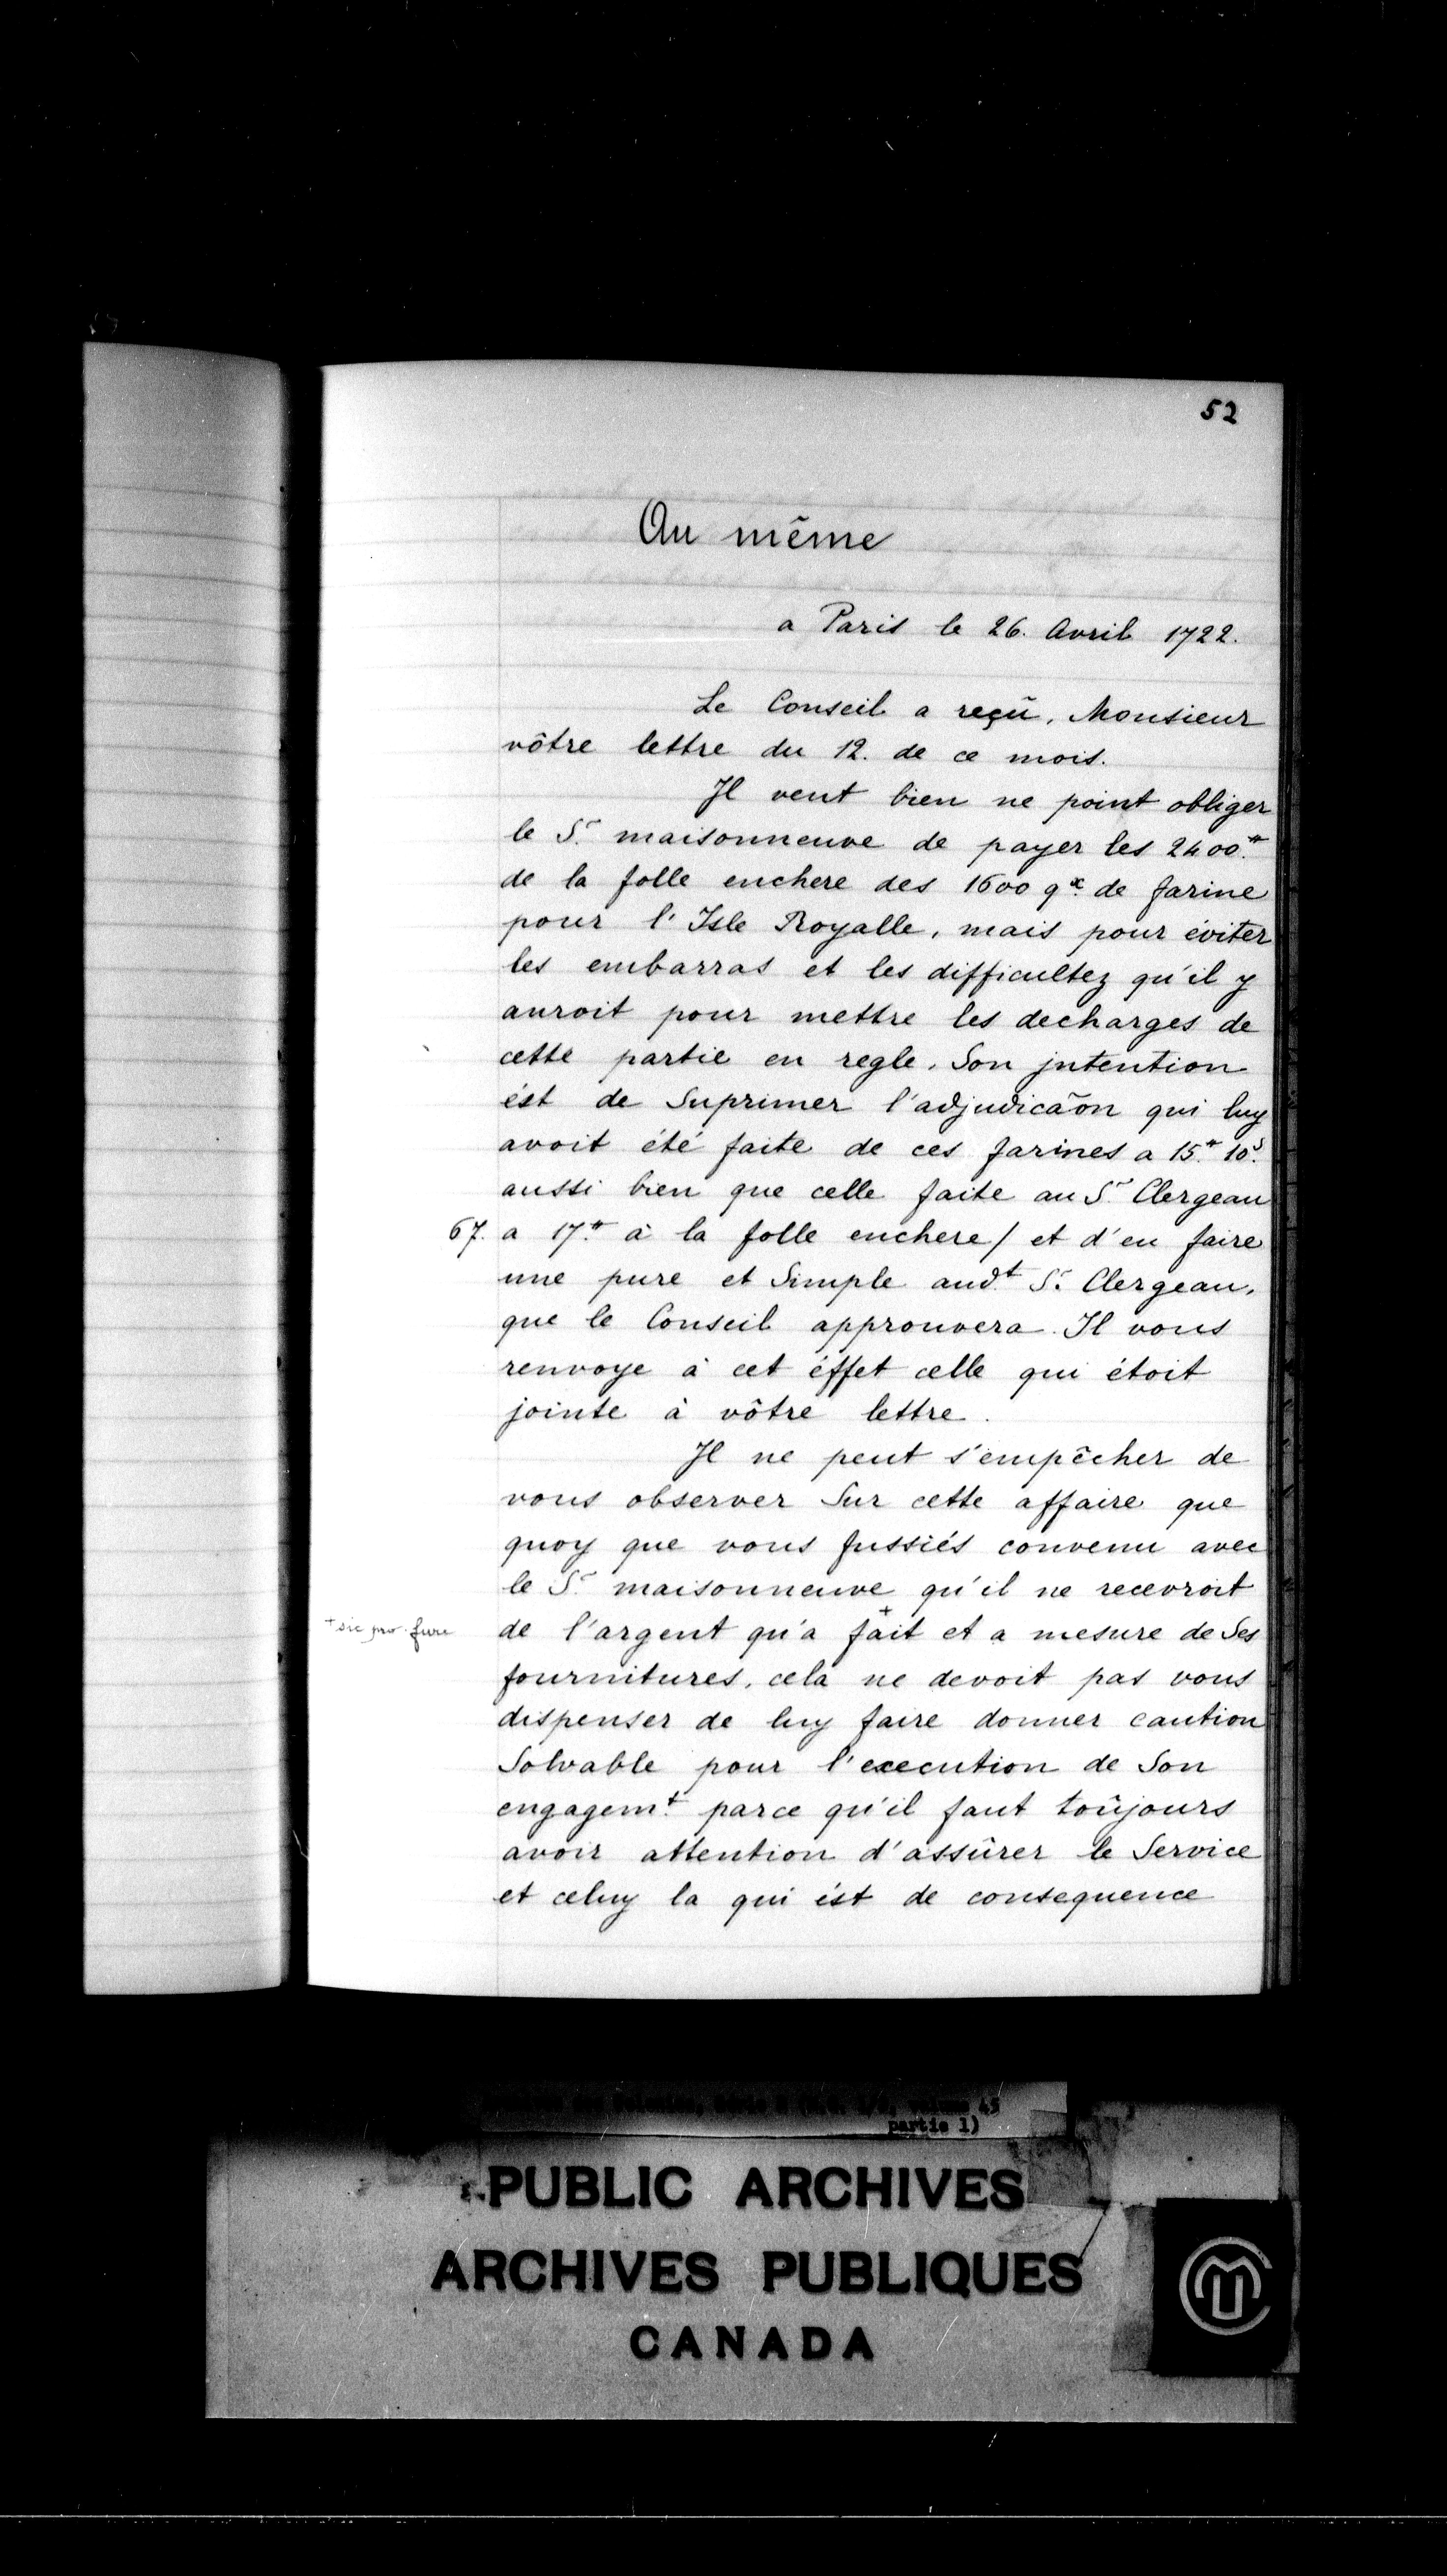 52
Au même
a Paris le 26. Avril 1722.
Le Conseil a reçû, Monsieur
vôtre lettre du 12. de ce mois.
Il veut bien ne point obliger
le Sr. maisonneuve de payer les 2400.#
de la folle enchere des 1600 qx. de farine
pour l'Isle Royalle, mais pour éviter
les embarras et les difficultez qu'il y
auroit pour mettre les decharges de
cette partie en regle, Son jntention
ést de Suprimer l'adjudicãon qui luy
avoit été faite de ces farines a 15.# 10s.
aussi bien que celle faite au Sr. Clergeau
67. a 17.# à la folle enchere / et d'en faire
une pure et Simple aud.t Sr. Clergeau,
que le Conseil approuvera. Il vous
renvoye à cet éffet celle qui étoit
jointe à vôtre lettre.
Il ne peut s'empêcher de
vous observer Sur cette affaire que
quoy que vous fussiés convenu avec
le Sr. maisonneuve qu'il ne recevroit
+ sic pro fur
de l'argent qu'a fait + et a mesure de Ses
fournitures, cela ne devoit pas vous
dispenser de luy faire donner caution
Solvable pour l'execution de Son
engagem.t parce qu'il faut toûjours
avoir attention d'assûrer le Service
et celuy la qui ést de consequence
45
partie 1)
PUBLIC ARCHIVES
ARCHIVES PUBLIQUES
CANADA